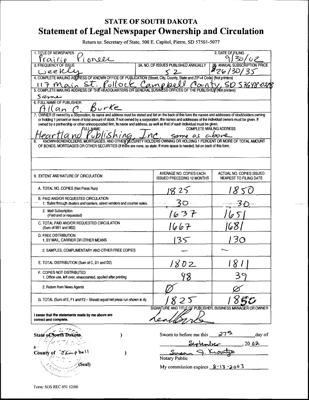 STATE OF SOUTH DAKOTA
Statement of Legal Newspaper Ownership and Circulation
Return to: Secretary of State, 500 E. Capitol, Pierre, SD 57501-5077
1. TITLE OF NEWSPAPER 2. DATE OF FILING
Prairie Pioneer 9/30/02
3. FREQUENCY OF ISSUE 3A. NO. OF ISSUES PUBLISHED ANNUALLY 3B. ANNUAL SUBSCRIPTION PRICE
weekly 52 $26/30/35
4. COMPLETE MAILING ADDRESS OF KNOWN OFFICE OF PUBLICATION (Street, City, County, State and ZIP+4 Code) (Not printers)
117 Main St. Pollock Campbell County, SD
5. COMPLETE MAILING ADDRESS OF THE HEADQUARTERS OR GENERAL BUSINESS OFFICES OF THE PUBLISHER (Not printers)
Same
6. FULL NAME OF PUBLISHER:
Allan C. Burke
7. OWNER (If owned by a corporation, its name and address must be stated and list on the back of this form the names and addresses of stockholders owning
or holding 1 percent or more of total amount of stock. If not owned by a corporation, the names and addresses of the individual owners must be given. If
owned by a partnership or other unincorporated firm, its name and address, as well as that of each individual must be given.
FULL NAME COMPLETE MAILING ADDRESS
Heartland Publishing, Inc. same as above
8. KNOWN BONDHOLDERS, MORTGAGES, AND OTHER SECURITY HOLDERS OWNING OR HOLDING 1 PERCENT OR MORE OF TOTAL AMOUNT
OF BONDS, MORTGAGES OR OTHER SECURITIES (If there are none, so state. If more space is needed, list on back of this form.
9. EXTENT AND NATURE OF CIRCULATION AVERAGE NO. COPIES EACH ISSUED PRECEDING 12 MONTHS ACTUAL NO. COPIES ISSUED NEAREST TO FILING DATE
A. TOTAL NO. COPIES (Net Press Run) 1825 1850
B. PAID AND/OR REQUESTED CIRCULATION
1. Sales through dealers and carriers, street vendors and counter sales. 30 30
2. Mail Subscription
(Paid and or requested) 1637 1651
C. TOTAL PAID AND/OR REQUESTED CIRCULATION
(Sum of 9B1 and 9B2) 1667 1681
D. FREE DISTRIBUTION
1. BY MAIL, CARRIER OR OTHER MEANS 135 130
2. SAMPLES, COMPLIMENTARY AND OTHER FREE COPIES - -
E. TOTAL DISTRIBUTION (Sum of C, D1 and D2) 1802 1811
F. COPIES NOT DISTRIBUTED
1. Office use, left over, unaccounted, spoiled after printing 23 39
2. Return from News Agents Ø Ø
G. TOTAL (Sum of E, F1 and F2 - Should equal net press run shown in A) 1825 1850
SIGNATURE AND TITLE OF PUBLISHER, BUSINESS MANAGER OR OWNER
I swear that the statements made by me above are
correct and complete.
State of South Dakota )
Sworn to before me this 27th day of
September, 2002
County of Campbell )
Notary Public
(Seal)
My commission expires 8-13-2003
Form: SOS REC 051 12/00